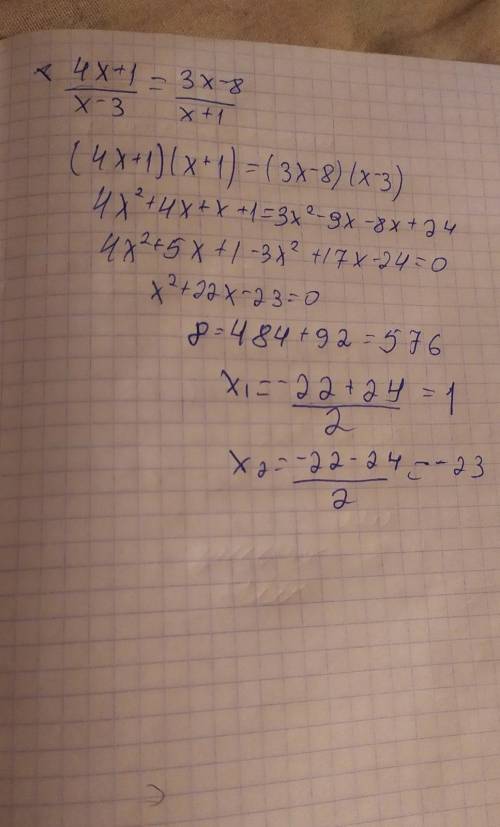 4x+1/x-3 = 3x-8/x+1
(4x+1)(x+1)=(3x-8)(x-3)
4x²+4x+x+1=3x²-9x-8x+24
4x²+5x+1-3x²+17x-24=0
x²+22x-23=0
8=484+92=576
x₁=-22+24/2=1
x₂=-22-24/2=-23